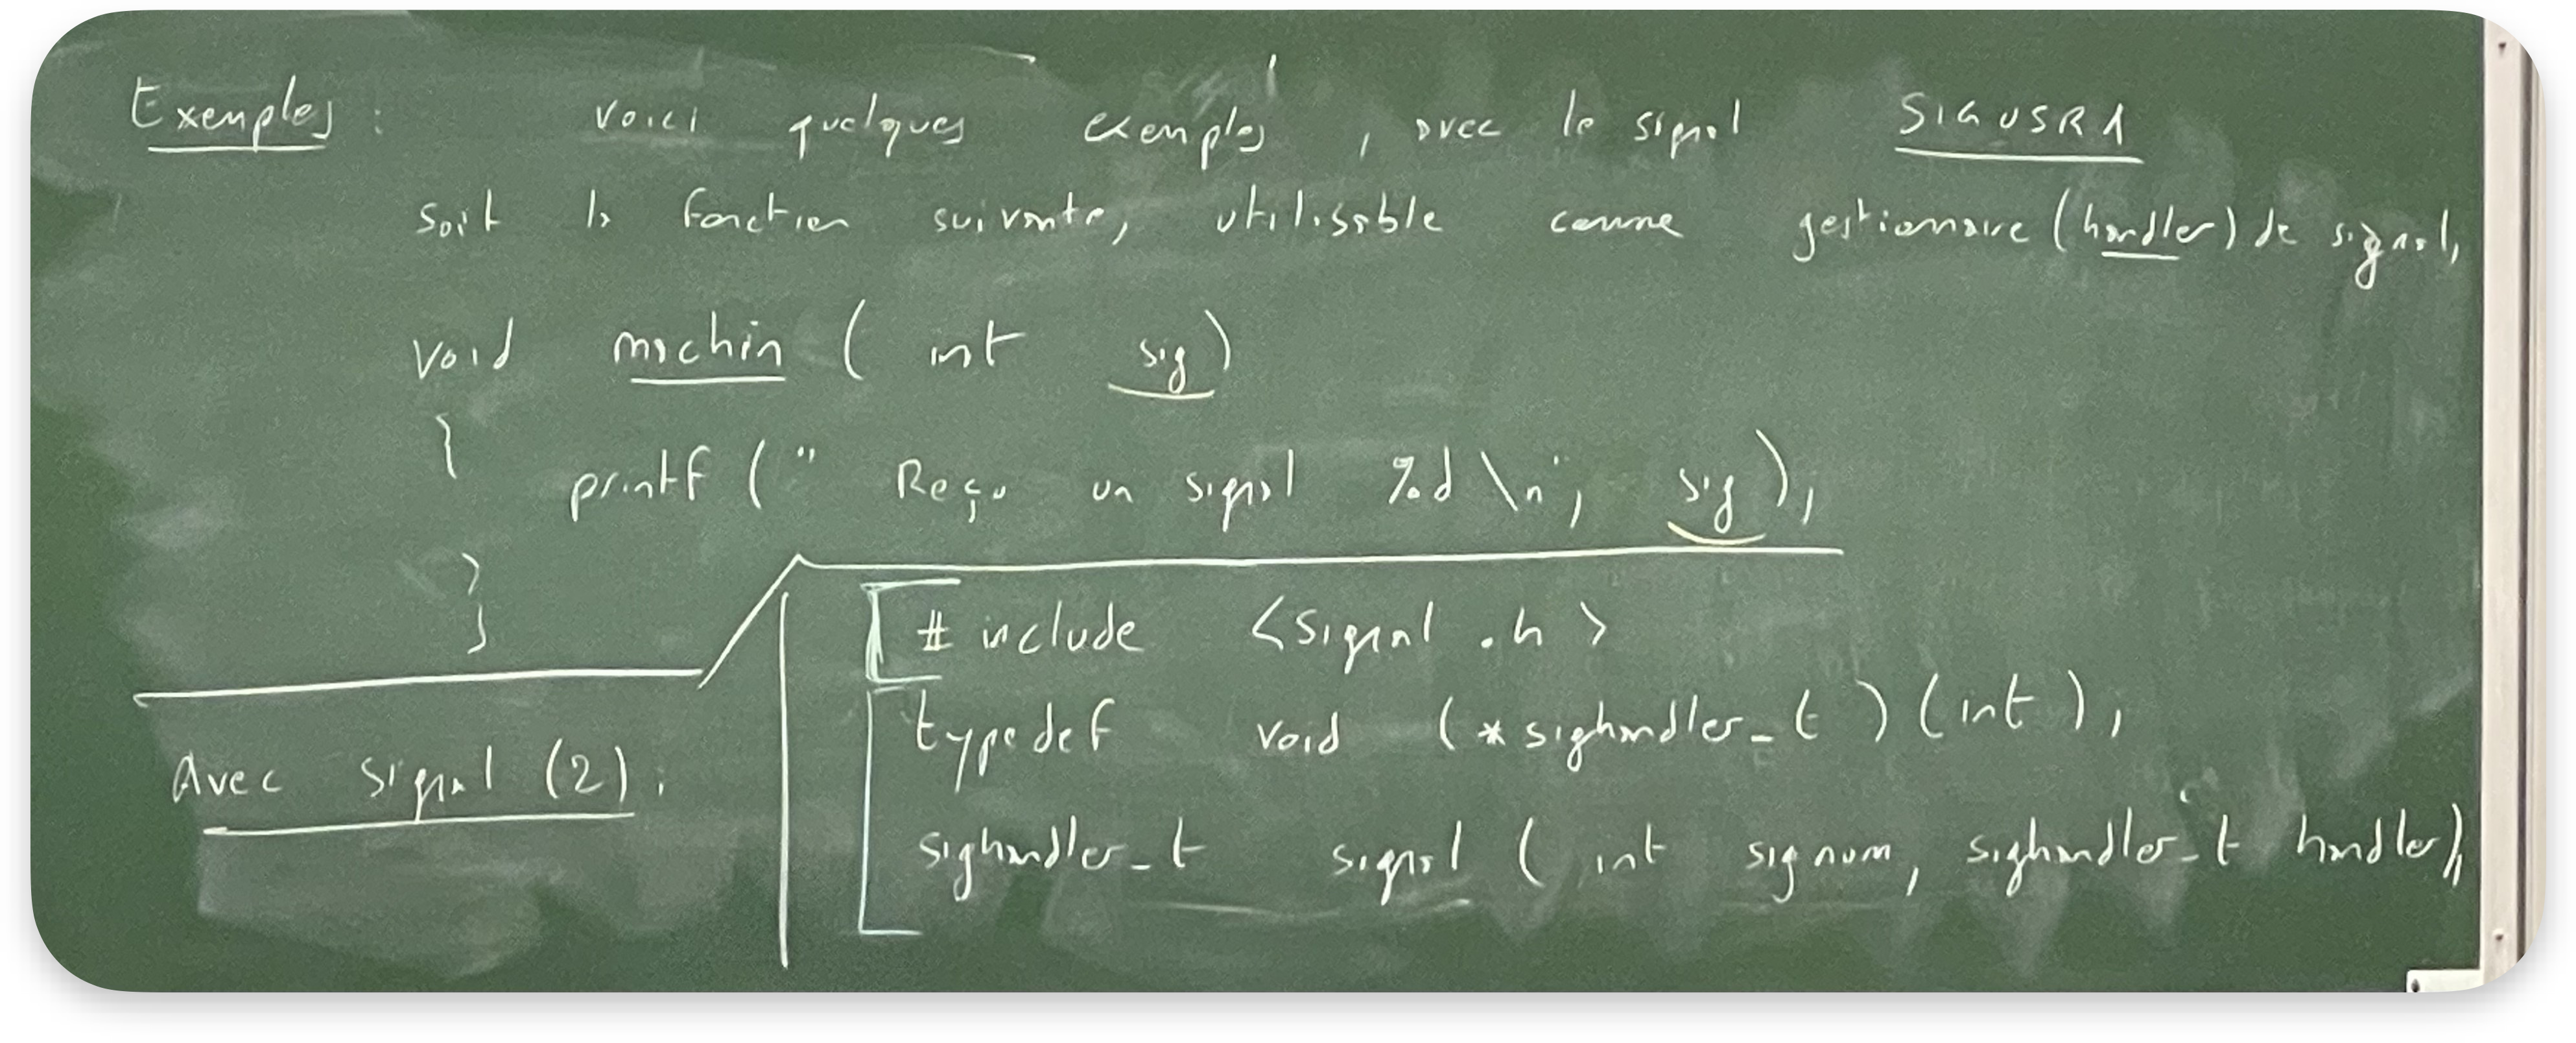 Exemples : voici quelques exemples, avec le signal SIGUSR1
soit la fonction suivante, utilisable comme gestionnaire (handler) de signal,
void machin ( int sig)
{
printf (" Reçu un signal %d \n", sig);
}
# include <signal.h>
typedef void (*sighandler_t) (int);
Avec signal (2) :
sighandler_t signal ( int signum, sighandler_t handler);